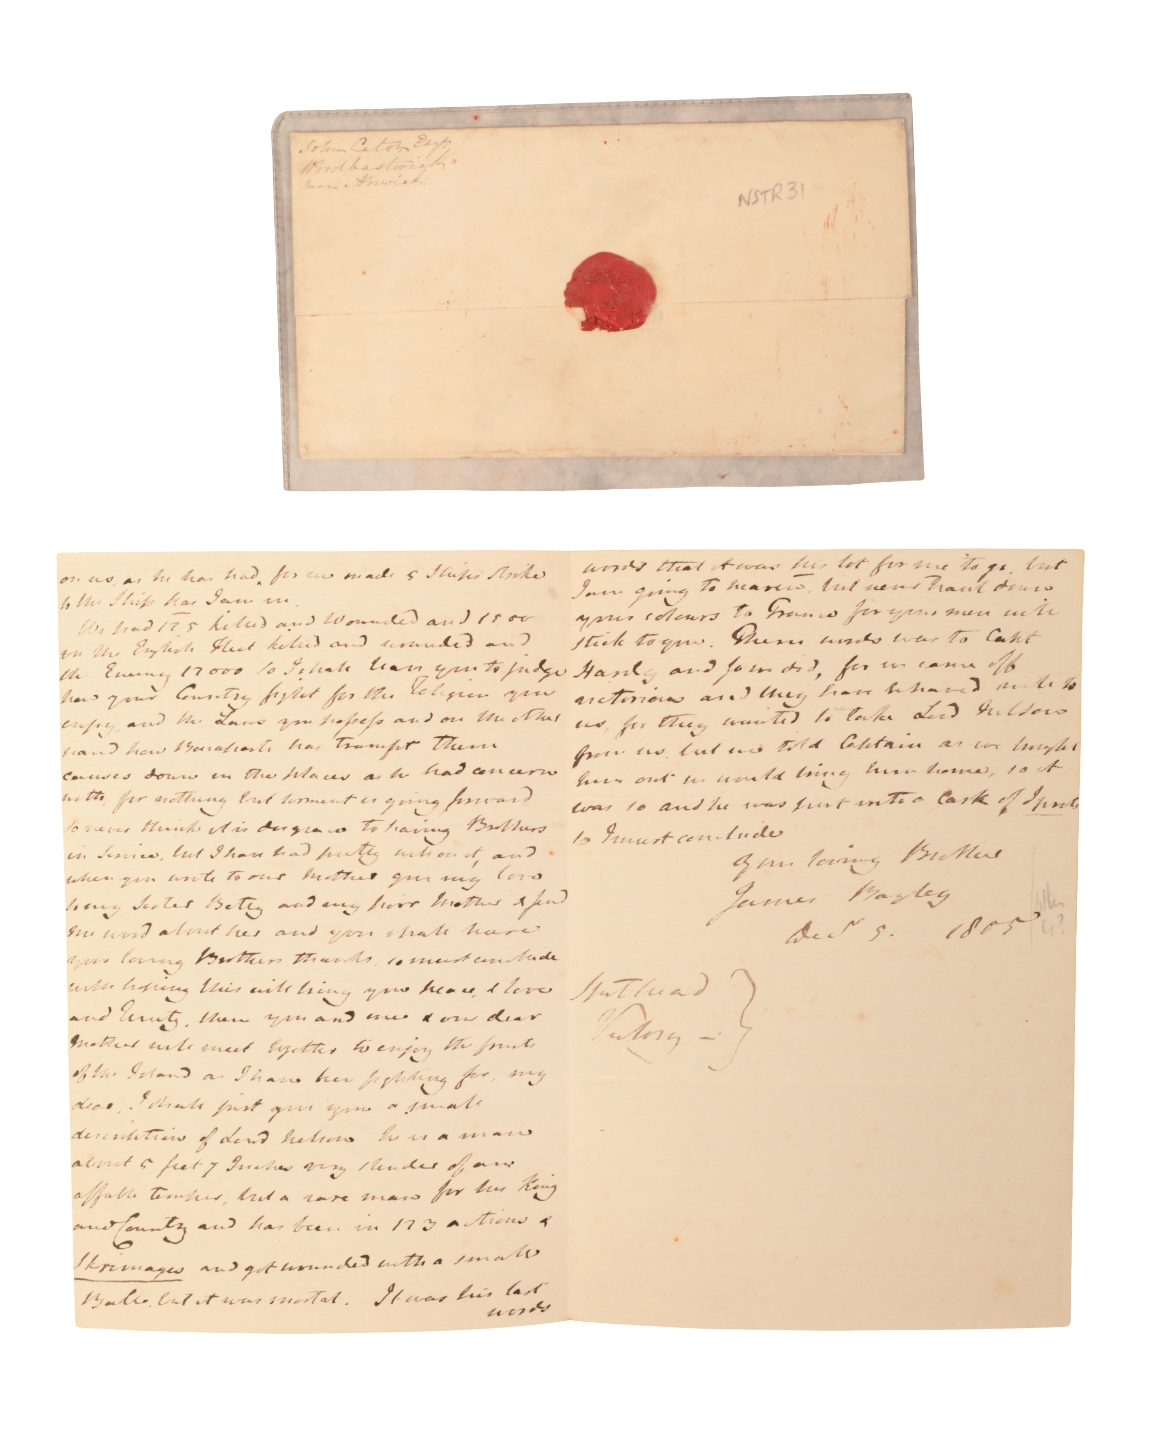 John Cator Esqr
Woodbastwick
near Norwich
NSTR31
on us, as he has had, for we made 5 Ships Strike
to the Ship has I am in.
We had 175 killed and Wounded and 1500
in the English Fleet killed and wounded and
the Enemy 12000 So I shall leave you to judge
how your Country fight for the Religion you
enjoy, and the Laws you possess and on the other
hand how Bonaparte has trampt them
causes down in the places as he had concern
with, for nothing but torment is going forward
so never think it is disgrace to having Brothers
in Service, but I have had pretty with it, and
when you write to our Mother give my love
to my Sister Betsy and my poor Mother & send
me word about her and you shall have
your loving Brothers thanks, so must conclude
with hoping this will bring you peace, & love
and Unity, then you and me & our dear
Mother will meet together to enjoy the fruits
of the Island as I have been fighting for, my
dear, I shall just give you a small
description of Lord Nelson he is a man
about 5 feet 7 Inches very slender of an
affable temper, but a rare man for his King
and Country and has been in 123 actions &
Skrimages and got wounded with a small
Ball, but it was mortal. It was his last
words
words that it was his lot for me to go, but
I am going to heaven, but never haul down
your colours to France for your men will
stick to you. These words was to Capt
Hardy and so we did, for we came off
victorious and they have behaved well to
us, for they wanted to take Lord Nelson
from us, but we told Captain as we brought
him out we would bring him home, so it
was so and he was put into a Cask of Spirits
so I must conclude
Your loving Brother
James Bagley
Decr 5. 1805
Spithead
Victory –